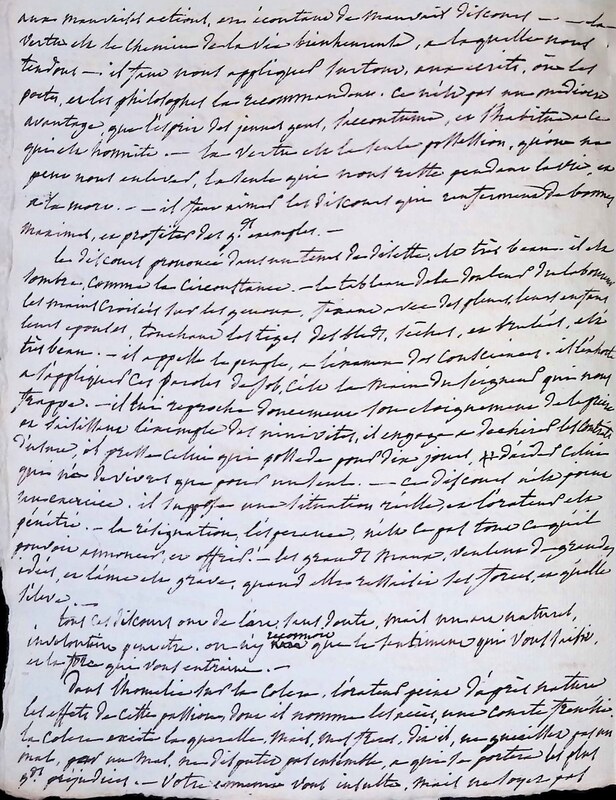 aux mauvaises actions, en écoutant de mauvais discours. — la
vertu est le chemin de la vie bienheureuse, a laquelle nous
tendons — il faut nous appliquer surtout, aux ecrits, où les
poetes, et les philosophes la recommandent. ce n'est pas un médiocre
avantage, que l'esprit des jeunes gens, s'accoutume, et s'habitue a ce
qui est honnête. — la vertu est la seule possession, qu'on ne
peut nous enlever, la seule qui nous reste pendant la vie, et
a la mort. — il faut aimer les discours qui renferment de bonnes
maximes, et profiter des gds exemples. —
le discours prononcé dans un tems de disette, est très beau. il est
sombre, comme la circonstance. — le tableau de la douleur du laboureur
les mains croisées sur les genoux, fixant avec des pleurs, leurs enfans
leurs epouses, touchant les tiges des bleds, séches, et brulées, est
très beau. — il appelle le peuple, a l'examen des consciences. il l'exhorte
a s'appliquer ces paroles de Job, c'est la main du seigneur qui nous
frappe. — il lui reproche doucement son eloignement de la priere
et saisissant l'exemple des ninivites, il engage a dechirer les contrats
d'usure, et presse celui qui possede pour dix jours, d'aider celui
qui n'a de vivres que pour un seul. — ce discours n'est point
un exercice. il suppose une situation réelle, et l'orateur est
pénétré. — la résignation, l'esperance, n'est ce pas tout ce qu'il
pouvoit annoncer, et offrir! — les grands maux, veulent de grandes
idées, et l'ame est grave, quand elle ressaisit ses forces, et qu'elle
s'eleve. —
tous ces discours ont de l'art, sans doute, mais un art naturel,
involontaire peut etre. on n'y reconnoit que le sentiment qui vous saisit,
et la force qui vous entraine. —
Dans l'homelie sur la colere, l'orateur peint d'après nature
les effets de cette passion, dont il nomme les accès, une courte frenesie
la colere excite la querelle, mais, mes freres, dit il, ne guerissez pas un
mal, par un mal, ne disputez pas ensemble, a qui se portera les plus
gds préjudices. — votre ennemi vous insulte, mais ne soyez pas